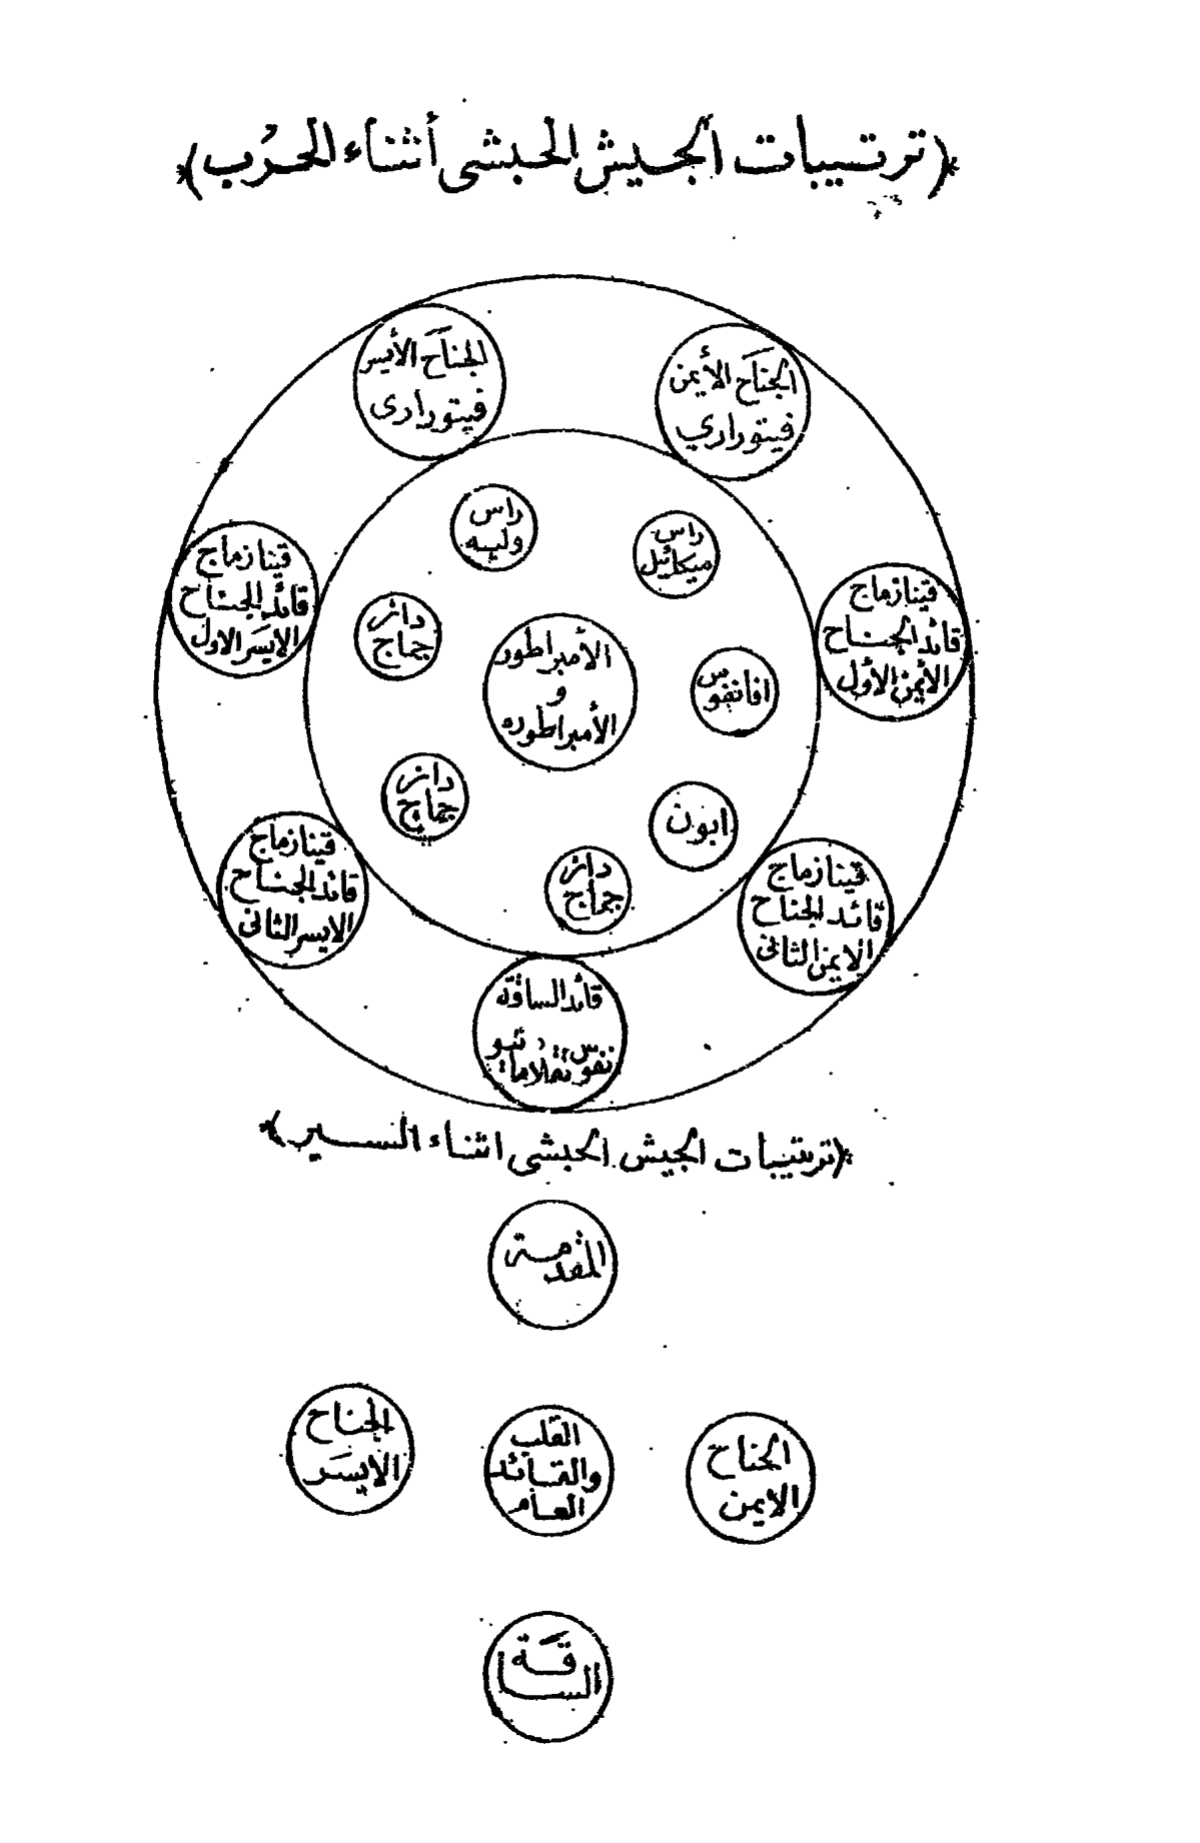 ﴿ترتيبات الجيش الحبشى أثناء الحرب﴾
الجناح الأيمن
فيتوراري
الجناح الأيسر
فيتورارى
راس
ميكائيل
راس
وليه
قينازماج
قائد الجناح
الأيمن الأول
قينازماج
قائد الجناح
الايسر الاول
افانقوس
الأمبراطور
و
الأمبراطوره
دائر
جماج
ابون
دائر
جماج
دائر
جماج
قينازماج
قائد الجناح
الايمن الثانى
قينازماج
قائد الجناح
الايسر الثانى
قائد الساقة
﴿ترتيبات الجيش الحبشى اثناء السير﴾
المقدمة
الجناح
الايمن
القلب
والقائد
العام
الجناح
الايسر
الساقة